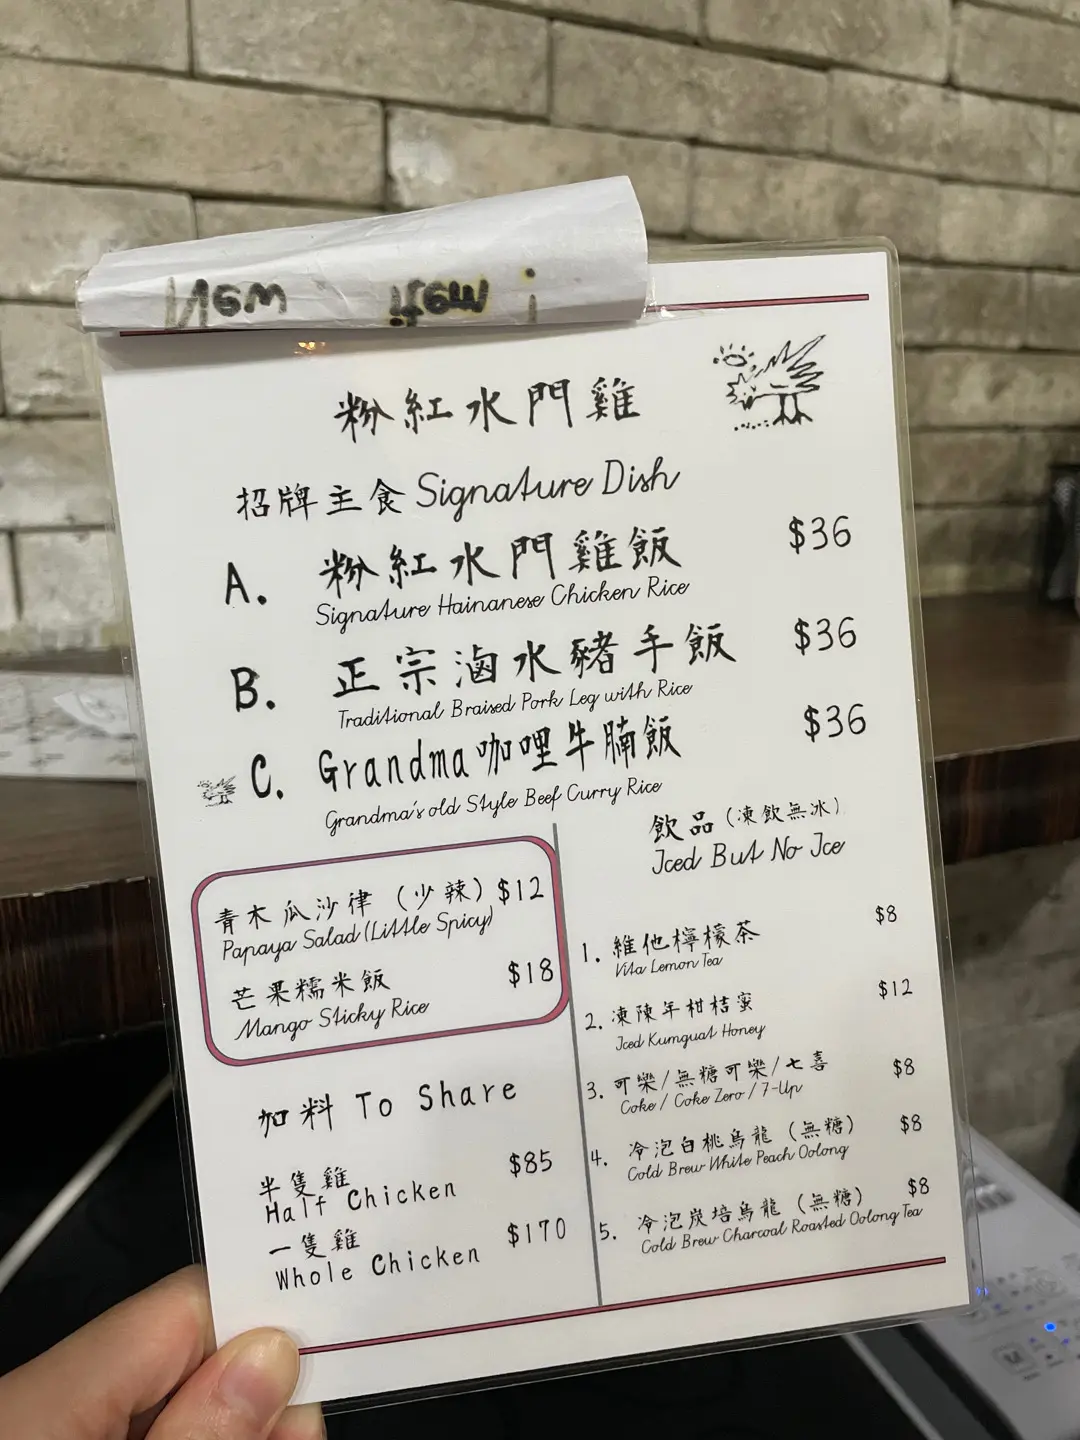 粉紅水門雞
招牌主食 Signature Dish
A. 粉紅水門雞飯 $36
Signature Hainanese Chicken Rice
B. 正宗滷水豬手飯 $36
Traditional Braised Pork Leg with Rice
C. Grandma咖哩牛腩飯 $36
Grandma's old Style Beef Curry Rice
青木瓜沙律（少辣）$12
Papaya Salad (Little Spicy)
芒果糯米飯 $18
Mango Sticky Rice
加料 To Share
半隻雞 $85
Half Chicken
一隻雞 $170
Whole Chicken
飲品（凍飲無冰）
Iced But No Ice
1. 維他檸檬茶 $8
Vita Lemon Tea
2. 凍陳年柑桔蜜 $12
Iced Kumguat Honey
3. 可樂/無糖可樂/七喜 $8
Coke / Coke Zero / 7-Up
4. 冷泡白桃烏龍（無糖） $8
Cold Brew White Peach Oolong
5. 冷泡炭培烏龍（無糖） $8
Cold Brew Charcoal Roasted Oolong Tea